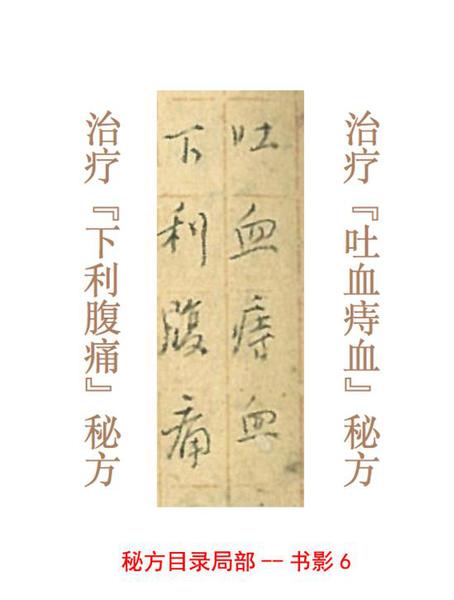 治疗『吐血痔血』秘方
吐血痔血
下利腹痛
治疗『下利腹痛』秘方
秘方目录局部 -- 书影 6